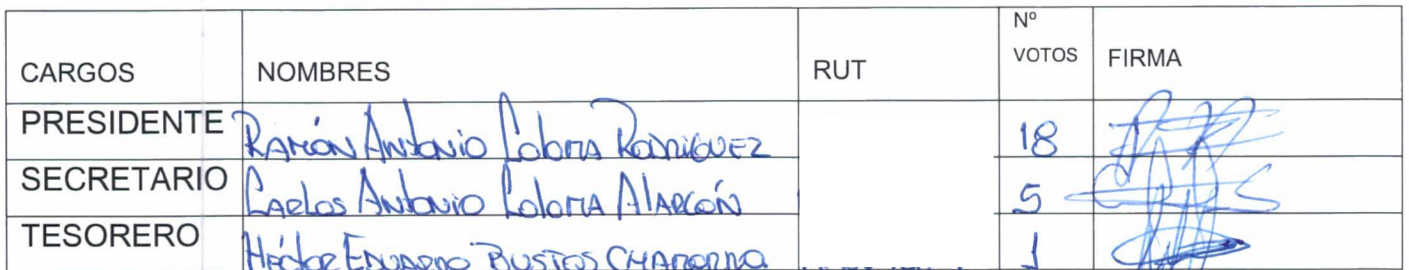 CARGOS NOMBRES RUT Nº VOTOS FIRMA
PRESIDENTE Ramón Antonio Coloma Rodriguez 18
SECRETARIO Carlos Antonio Coloma Alarcón 5
TESORERO Héctor Eduardo Bustos 1